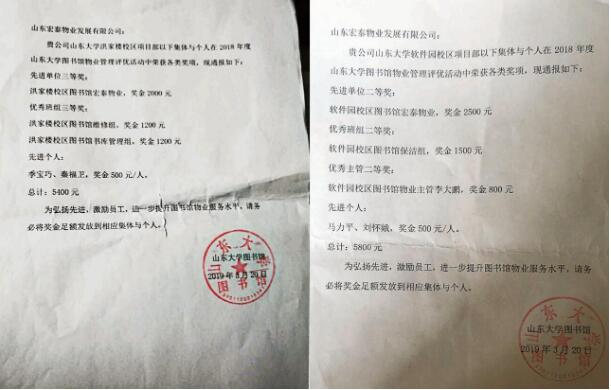 山东宏泰物业发展有限公司：
贵公司山东大学洪家楼校区项目部以下集体与个人在 2018 年度
山东大学图书馆物业管理评优活动中荣获各类奖项，现通报如下：
先进单位三等奖：
洪家楼校区图书馆宏泰物业，奖金 2000 元
优秀班组三等奖：
洪家楼校区图书馆维修组，奖金 1200 元
洪家楼校区图书馆书库管理组，奖金 1200 元
先进个人：
季宝巧、秦福卫，奖金 500 元/人。
总计：5400 元
为弘扬先进，激励员工，进一步提升图书馆物业服务水平，请务
必将奖金足额发放到相应集体与个人。
山东大学图书馆
2019 年 3 月 20 日
山东大学图书馆
山东宏泰物业发展有限公司：
贵公司山东大学软件园校区项目部以下集体与个人在 2018 年度
山东大学图书馆物业管理评优活动中荣获各类奖项，现通报如下：
先进单位二等奖：
软件园校区图书馆宏泰物业，奖金 2500 元
优秀班组二等奖：
软件园校区图书馆保洁组，奖金 1500 元
优秀主管二等奖：
软件园校区图书馆物业主管李大鹏，奖金 800 元
先进个人：
马力平、刘怀娥，奖金 500 元/人。
总计：5800 元
为弘扬先进，激励员工，进一步提升图书馆物业服务水平，请务
必将奖金足额发放到相应集体与个人。
山东大学图书馆
2019 年 3 月 20 日
山东大学图书馆